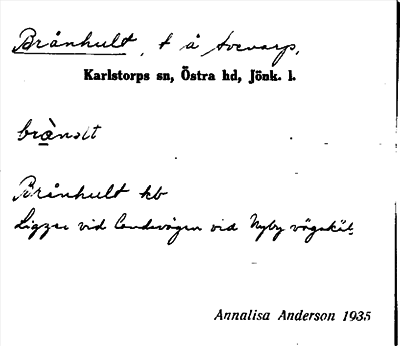 Brånhult, t å torvarp,
Karlstorps sn, Östra hd, Jönk. l.
brånɔlt
Brånhult kb
Ligger vid landsvägen vid Nyby vägskäl.
Annalisa Anderson 1935